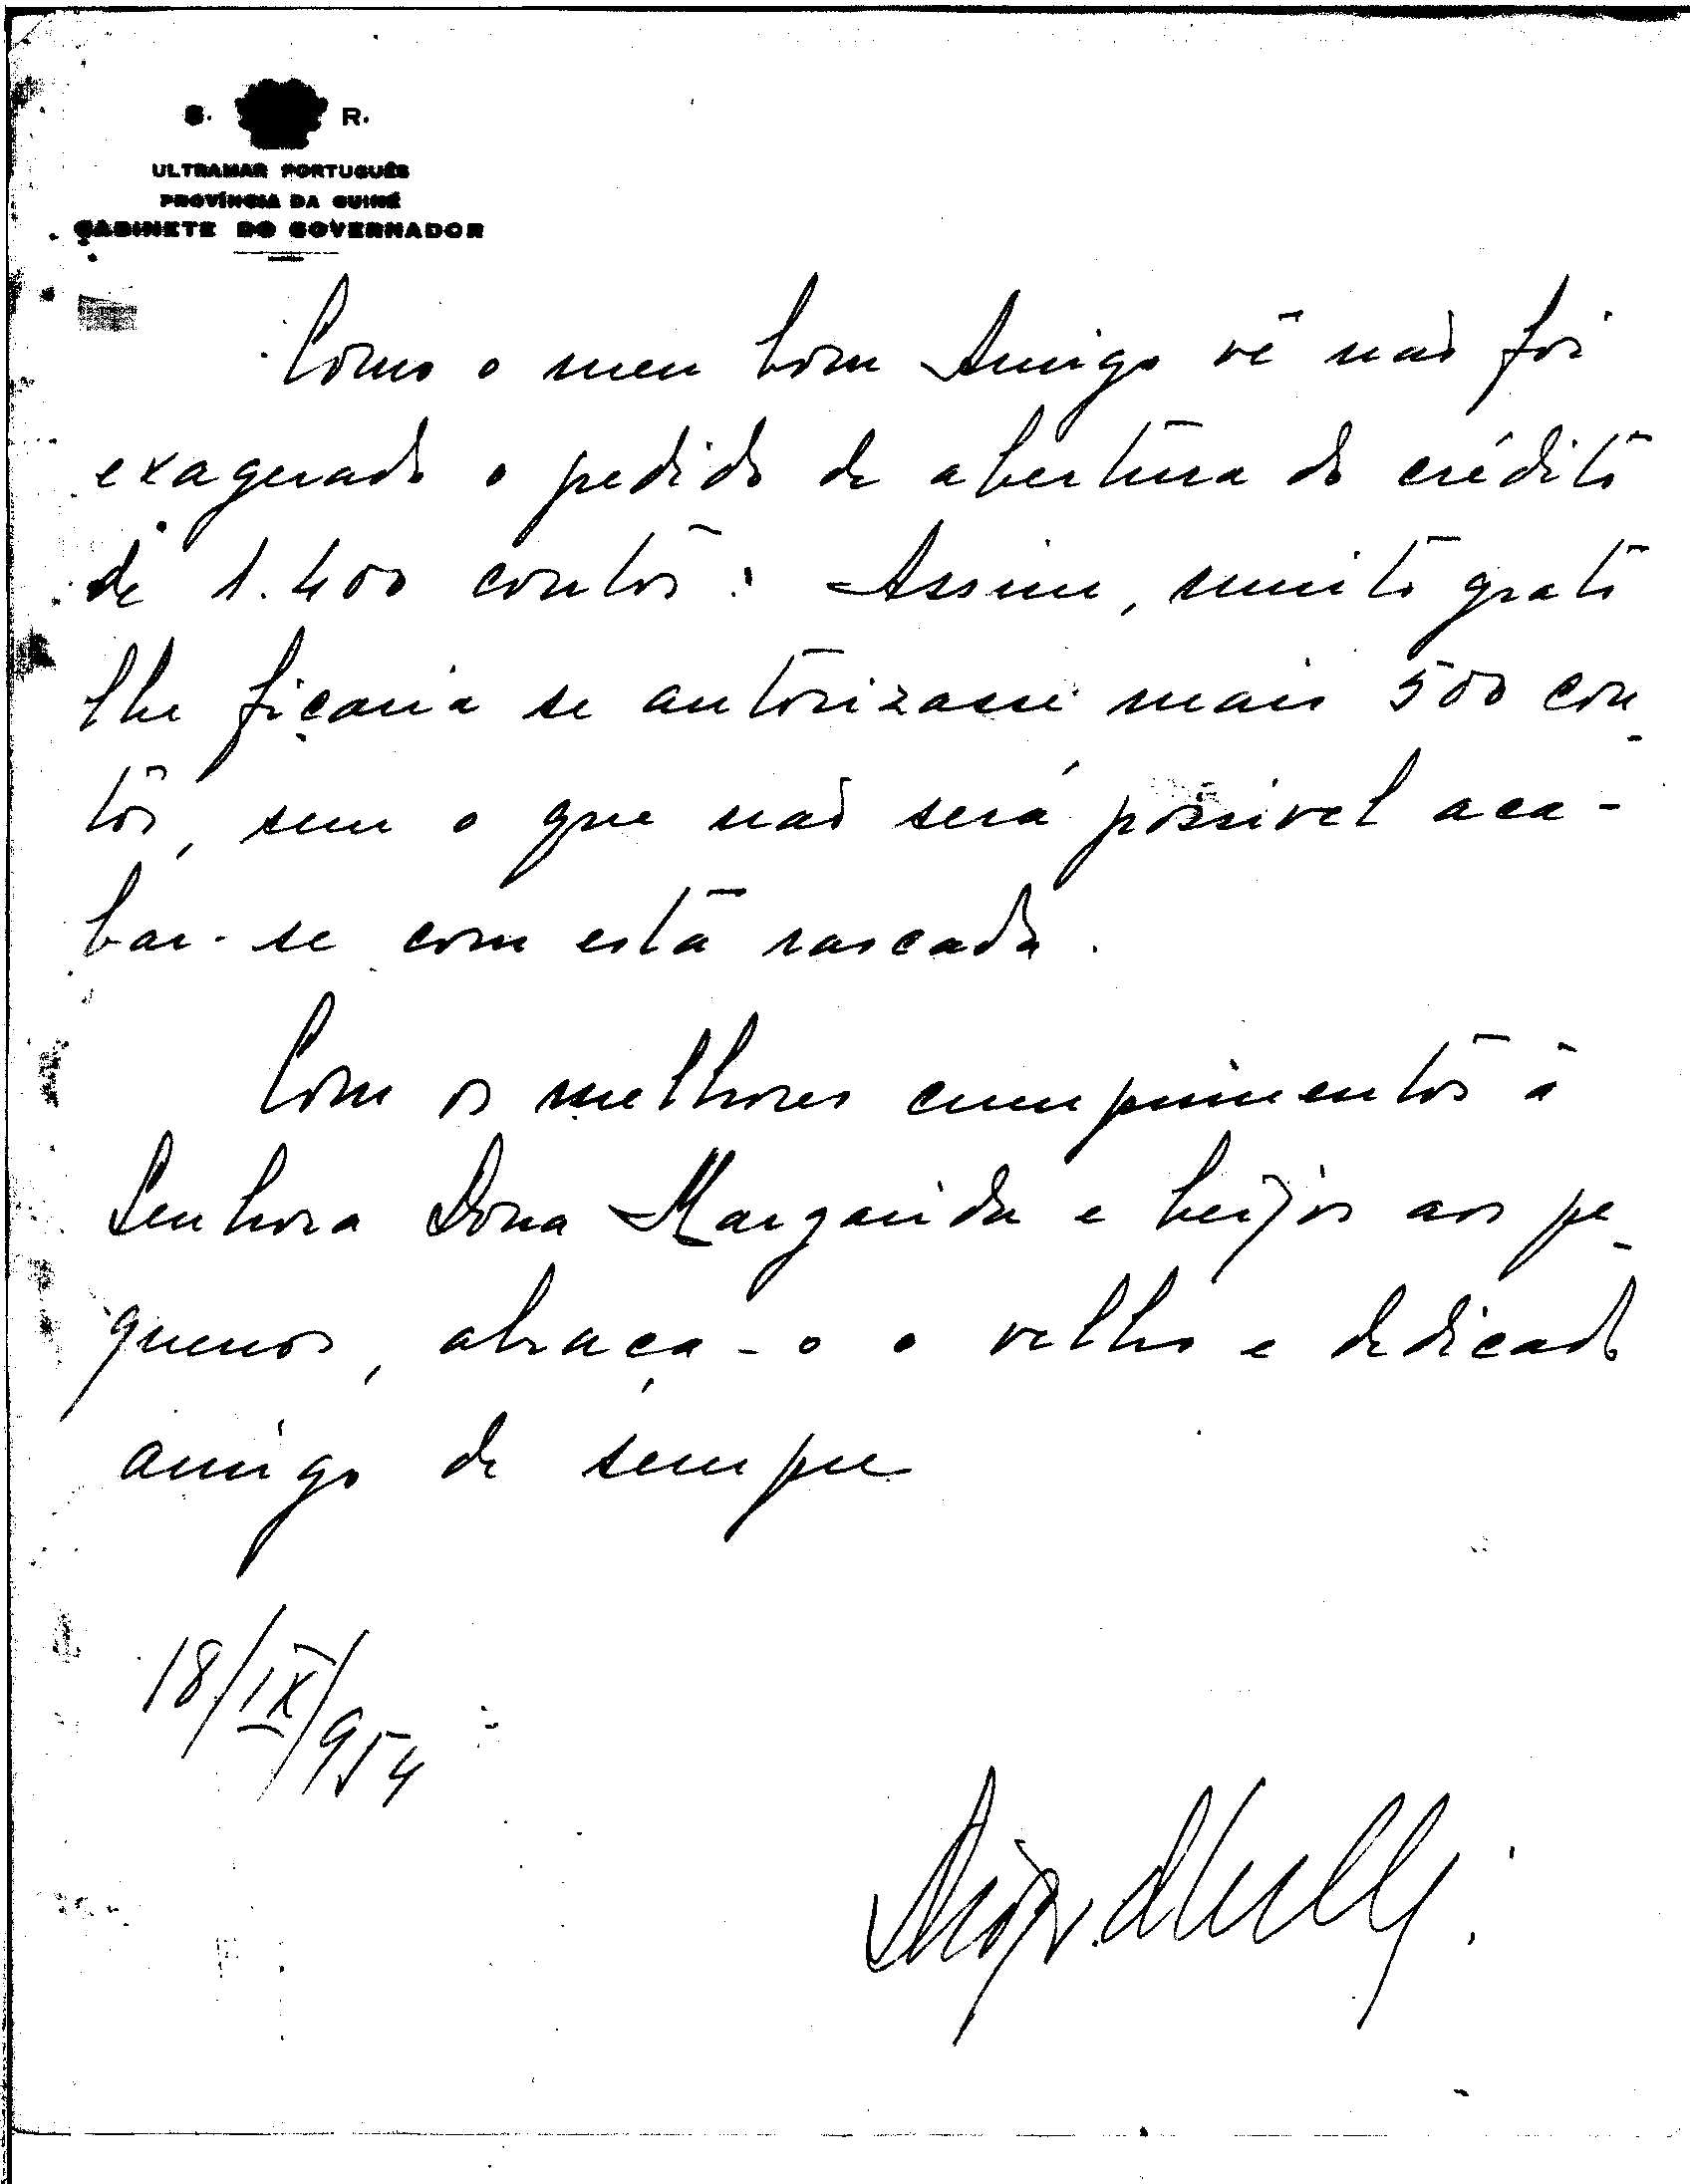 S. R.
ULTRAMAR PORTUGUÊS
PROVÍNCIA DA GUINÉ
GABINETE DO GOVERNADOR
Como o meu bom Amigo vê não foi
exagerado o pedido da abertura do crédito
de 1.400 contos: Assim, muito grato
lhe ficaria se autorizasse mais 500 con-
tos, sem o que não será possivel aca-
bar-se com esta rascada.
Com os melhores cumprimentos à
Senhora Dona Margarida e beijos aos pe-
quenos, abraça-o o velho e dedicado
amigo de sempre
18/IX/954